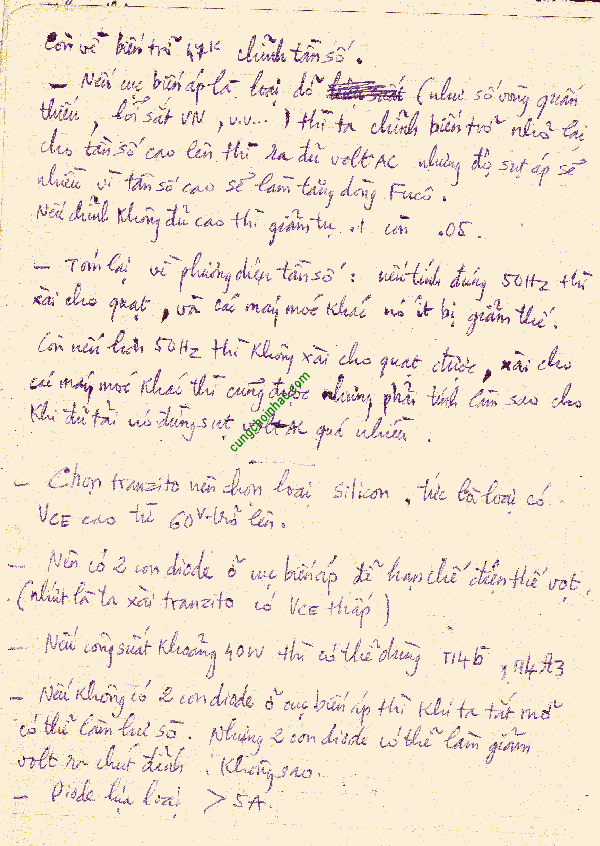 Còn về biến trở 47K chỉnh tần số.
– Nếu cục biến áp là loại dỏ (như số vòng quấn
thiếu, lõi sắt VN, v.v...) thì ta chỉnh biến trở nhỏ lại
cho tần số cao lên thì ra đủ volt AC nhưng độ sụt áp sẽ
nhiều vì tần số cao sẽ làm tăng dòng Fucô.
Nếu chỉnh không đủ cao thì giảm tụ .1 còn .05.
– Tóm lại về phương diện tần số : nếu tính đúng 50Hz thì
xài cho quạt, và các máy móc khác nó ít bị giảm thế.
Còn nếu hơn 50Hz thì không xài cho quạt được, xài cho
các máy móc khác thì cũng được nhưng phải tính làm sao cho
khi đủ tải nó đừng sụt volt AC quá nhiều.
cungchoiphat.com
– Chọn tranzito nên chọn loại silicon, tức là loại có
VCE cao từ 60V trở lên.
– Nên có 2 con diode ở cục biến áp để hạn chế điện thế vọt.
(nhứt là ta xài tranzito có VCE thấp)
– Nếu công suất khoảng 40W thì có thể dùng
– Nếu không có 2 con diode ở cục biến áp thì khi ta tắt mở
có thể làm hư sò. Nhưng 2 con diode có thể làm giảm
volt ra chút đỉnh. Không sao.
– Diode lựa loại > 5A.